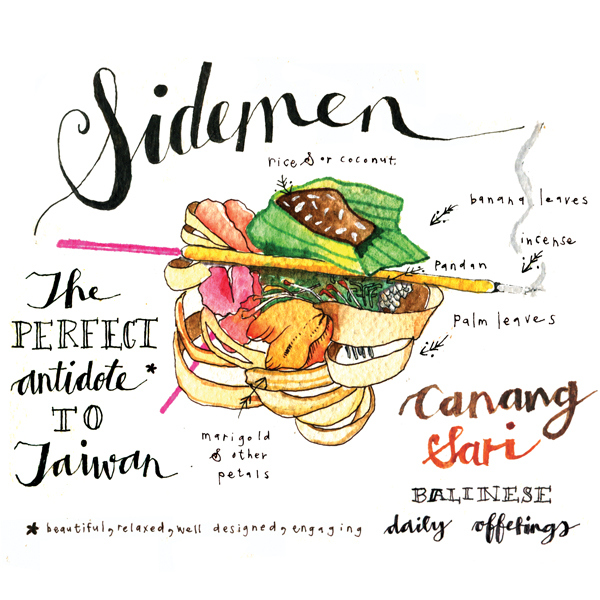 Sidemen
rice & or coconut.
banana leaves
incense
Pandan
palm leaves
The
PERFECT
antidote*
TO
Taiwan
marigold
& other
petals
Canang
Sari
BALINESE
daily offerings
* beautiful, relaxed, well designed, engaging